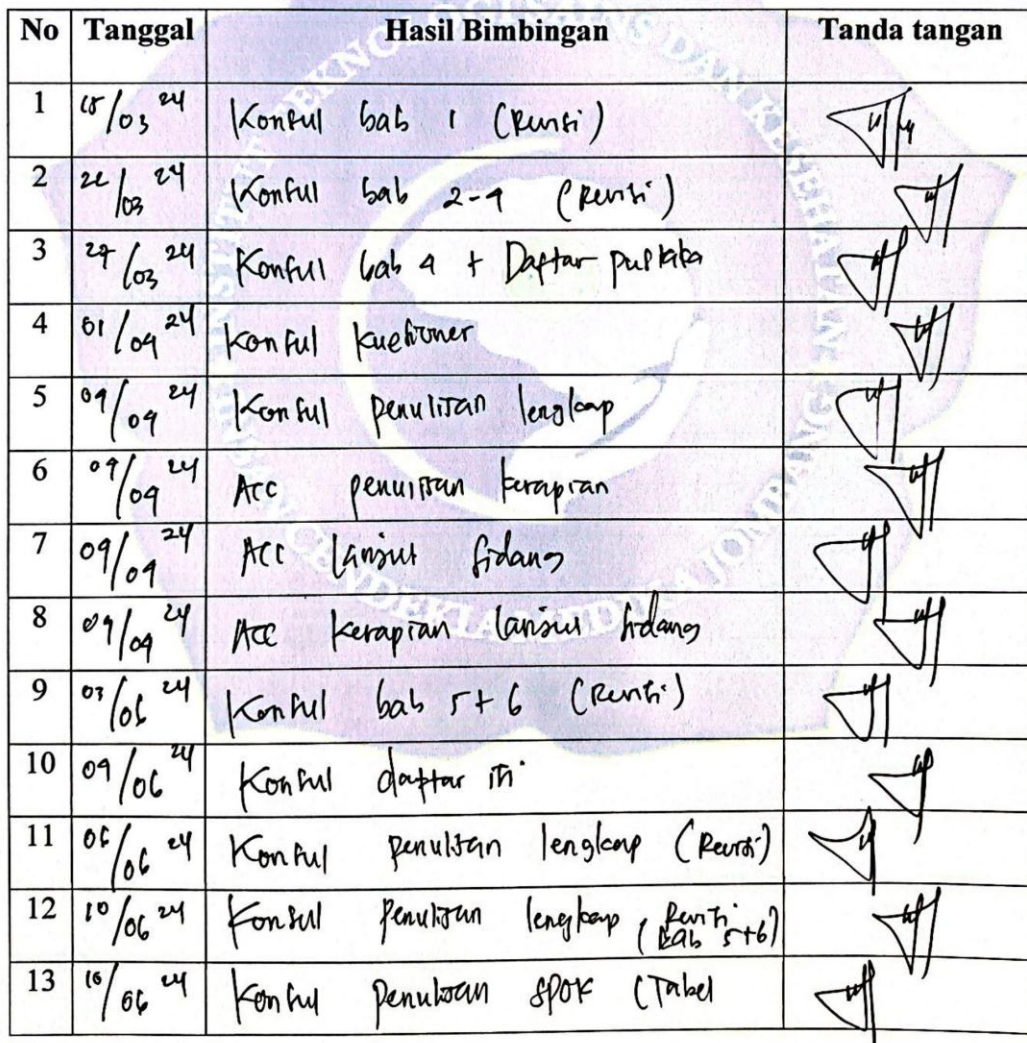 No Tanggal Hasil Bimbingan Tanda tangan
1 18/03 24 Konsul bab 1 (Revisi)
2 22/03 24 Konsul bab 2-4 (Revisi)
3 27/03 24 Konsul bab 4 + Daftar pustaka
4 01/04 24 Konsul kuesioner
5 04/04 24 Konsul penulisan lengkap
6 04 24 ACC penulisan kerapian
7 09/04 24 ACC lanjut sidang
8 09/04 24 ACC kerapian lanjut sidang
9 03/06 24 Konsul bab 5+6 (Revisi)
10 04/06 24 Konsul daftar isi
11 06/06 24 Konsul penulisan lengkap (Revisi)
12 10/06 24 Konsul penulisan lengkap (Revisi
bab 5+6)
13 06 24 Konsul penulisan SPOK (Tabel